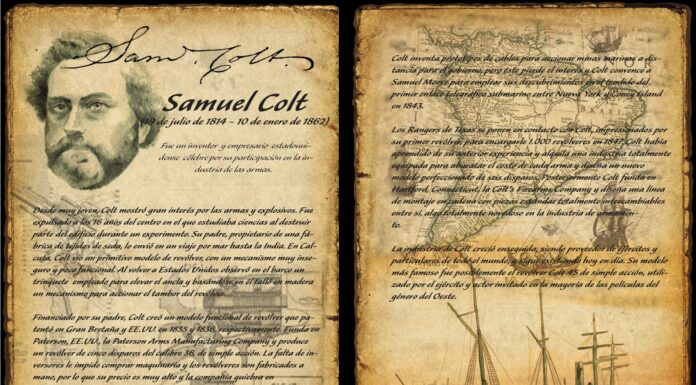 Sam. Colt.
Samuel Colt
(19 de julio de 1814 - 10 de enero de 1862)
Fue un inventor y empresario estadouni-
dense célebre por su participación en la in-
dustria de las armas.
Desde muy joven, Colt mostró gran interés por las armas y explosivos. Fue
expulsado a los 16 años del centro en el que estudiaba ciencias al destruir
parte del edificio durante un experimento. Su padre, propietario de una fá-
brica de tejidos de seda, lo envió en un viaje por mar hasta la India. En Cal-
cuta, Colt vio un primitivo modelo de revólver, con un mecanismo muy inse-
guro y poco funcional. Al volver a Estados Unidos observó en el barco un
trinquete empleado para elevar el ancla y basándose en él talló en madera
un mecanismo para accionar el tambor del revólver.
Financiado por su padre, Colt creó un modelo funcional de revólver que pa-
tentó en Gran Bretaña y EE.UU. en 1835 y 1836, respectivamente. Funda en
Paterson, EE.UU., la Paterson Arms Manufacturing Company y produce
un revólver de cinco disparos del calibre 36, de simple acción. La falta de in-
versores le impide comprar maquinaria y los revólveres son fabricados a
mano, por lo que su precio es muy alto y la compañía quiebra en
Colt inventa prototipos de cables para accionar minas marinas a dis-
tancia para el gobierno, pero éste pierde el interés y Colt convence a
Samuel Morse para emplear sus descubrimientos en el tendido del
primer enlace telegráfico submarino entre Nueva York y Coney Island
en 1843.
Los Rangers de Texas se ponen en contacto con Colt, impresionados por
su primer revólver, para encargarle 1.000 revólveres en 1847. Colt había
aprendido de su anterior experiencia y alquila una industria totalmente
equipada para abaratar el coste de cada arma y diseña un nuevo
modelo perfeccionado de seis disparos. Posteriormente Colt funda en
Hartford, Connecticut, la Colt's Firearms Company y diseña una línea
de montaje en cadena con piezas estándar totalmente intercambiables
entre sí, algo totalmente novedoso en la industria de armamen-
to.
La industria de Colt creció enseguida, siendo proveedor de ejércitos y
particulares de todo el mundo, y sigue existiendo hoy en día. Su modelo
más famoso fue posiblemente el revólver Colt 45 de simple acción, utili-
zado por el ejército y actor invitado en la mayoría de las películas del
género del Oeste.